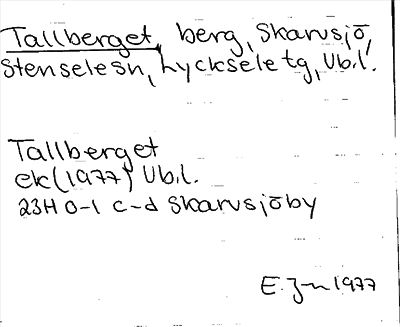 Tallberget, berg, Skarvsjö,
Stenselesn, Lycksele tg, Vb.l.
Tallberget
ek (1977) Vb.l.
23H 0-1 c-d Skarvsjöby
E. J-n 1977